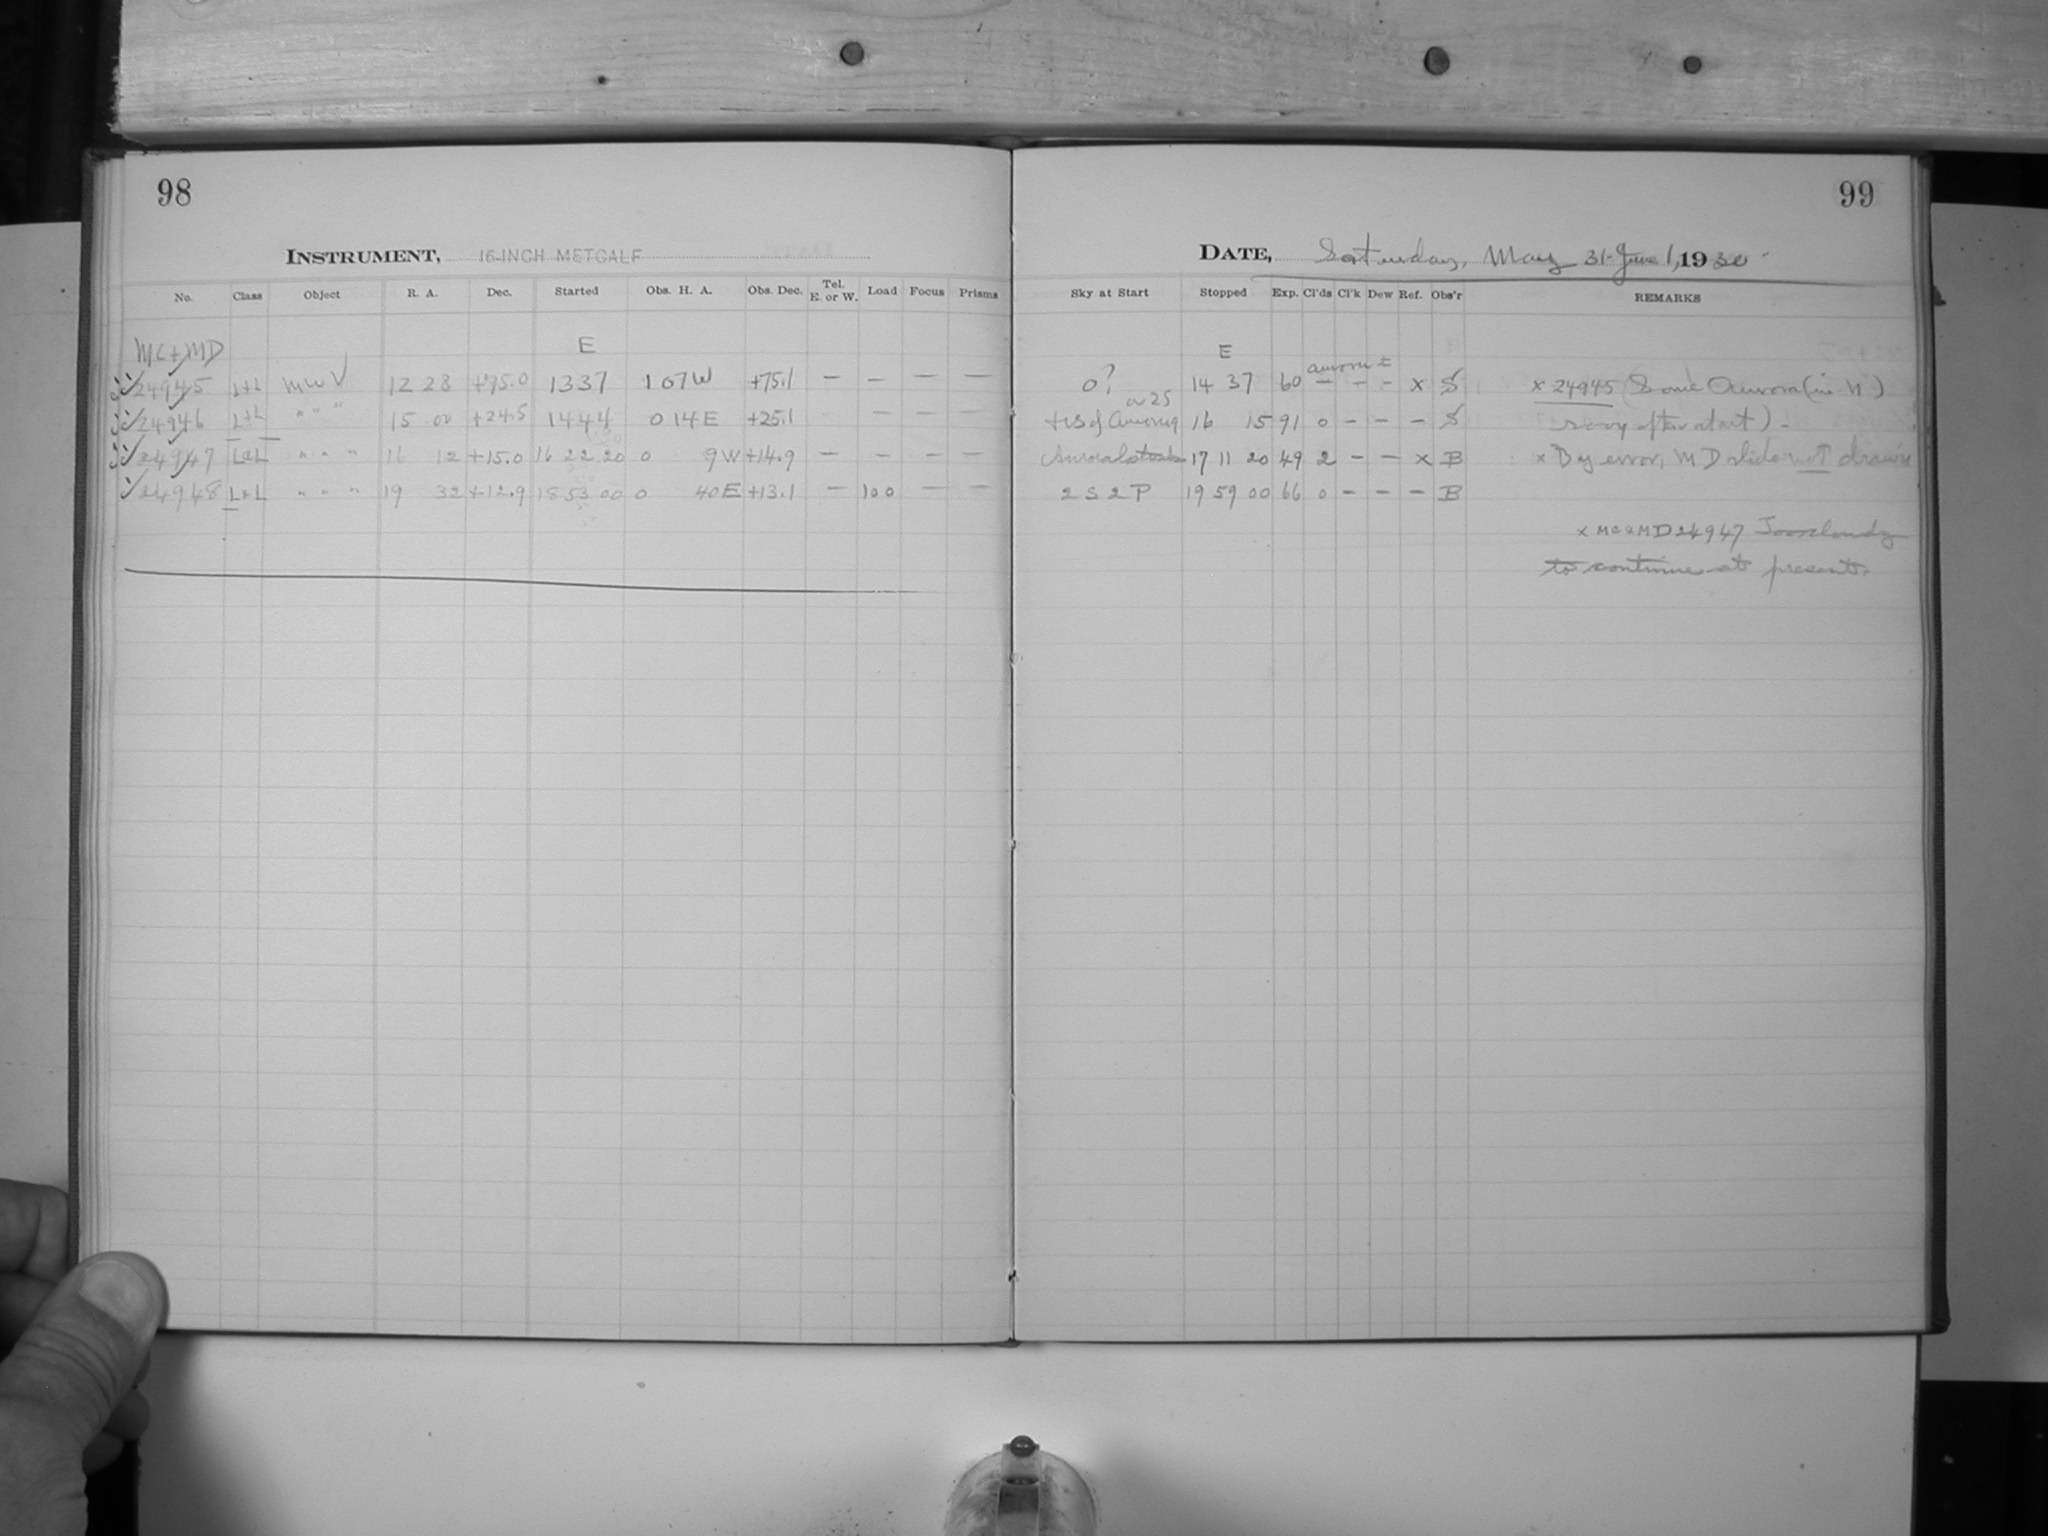 98
INSTRUMENT, 16-INCH METCALF
No. Class Object R. A. Dec. Started Obs. H. A. Obs. Dec. Tel. E. or W. Load Focus Prisms
MC+MD E
24945 L+L MWV 12 28 +75.0 1337 1 07 W +75.1 — — — —
24946 L+L " " " 15 00 +24.5 1444 0 14 E +25.1 — — —
24947 L+L " " " 16 12 +15.0 16 22 20 0 9 W +14.9 — — — —
24948 L+L " " " 19 32 +12.9 18 53 00 0 40 E +13.1 — 100 — —
99
DATE, Saturday, May 31-June 1, 1930
Sky at Start Stopped Exp. Cl'ds Cl'k Dew Ref. Obs'r REMARKS
E
0? 14 37 60 — — — x S x 24945 (Some Aurora (in N)
of Aurora 16 15 91 0 — — — S after start).
Auroral 17 11 20 49 2 — — x B x By error, MD slide not drawn
2 S 2 P 19 59 00 66 0 — — — B
x MC & MD 24947 Too cloudy
to continue at present.